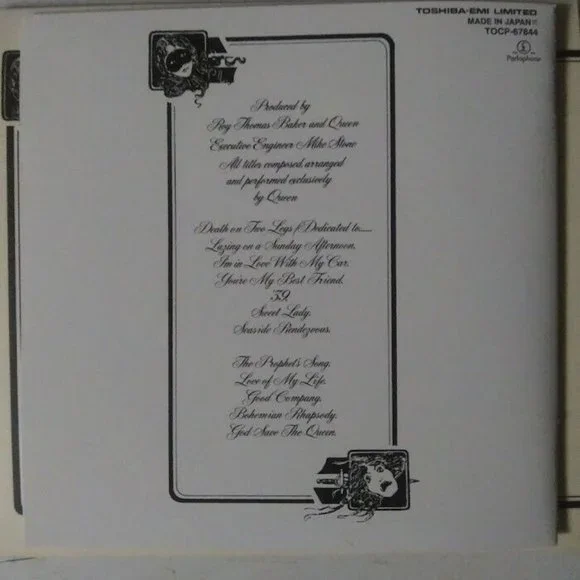 TOSHIBA-EMI LIMITED
MADE IN JAPAN
TOCP-67644
Parlophone
Produced by
Roy Thomas Baker and Queen
Executive Engineer Mike Stone
All titles composed, arranged
and performed exclusively
by Queen
Death on Two Legs (Dedicated to......
Lazing on a Sunday Afternoon.
I'm in Love With My Car.
You're My Best Friend.
'39.
Sweet Lady.
Seaside Rendezvous.
The Prophet's Song.
Love of My Life.
Good Company.
Bohemian Rhapsody.
God Save The Queen.